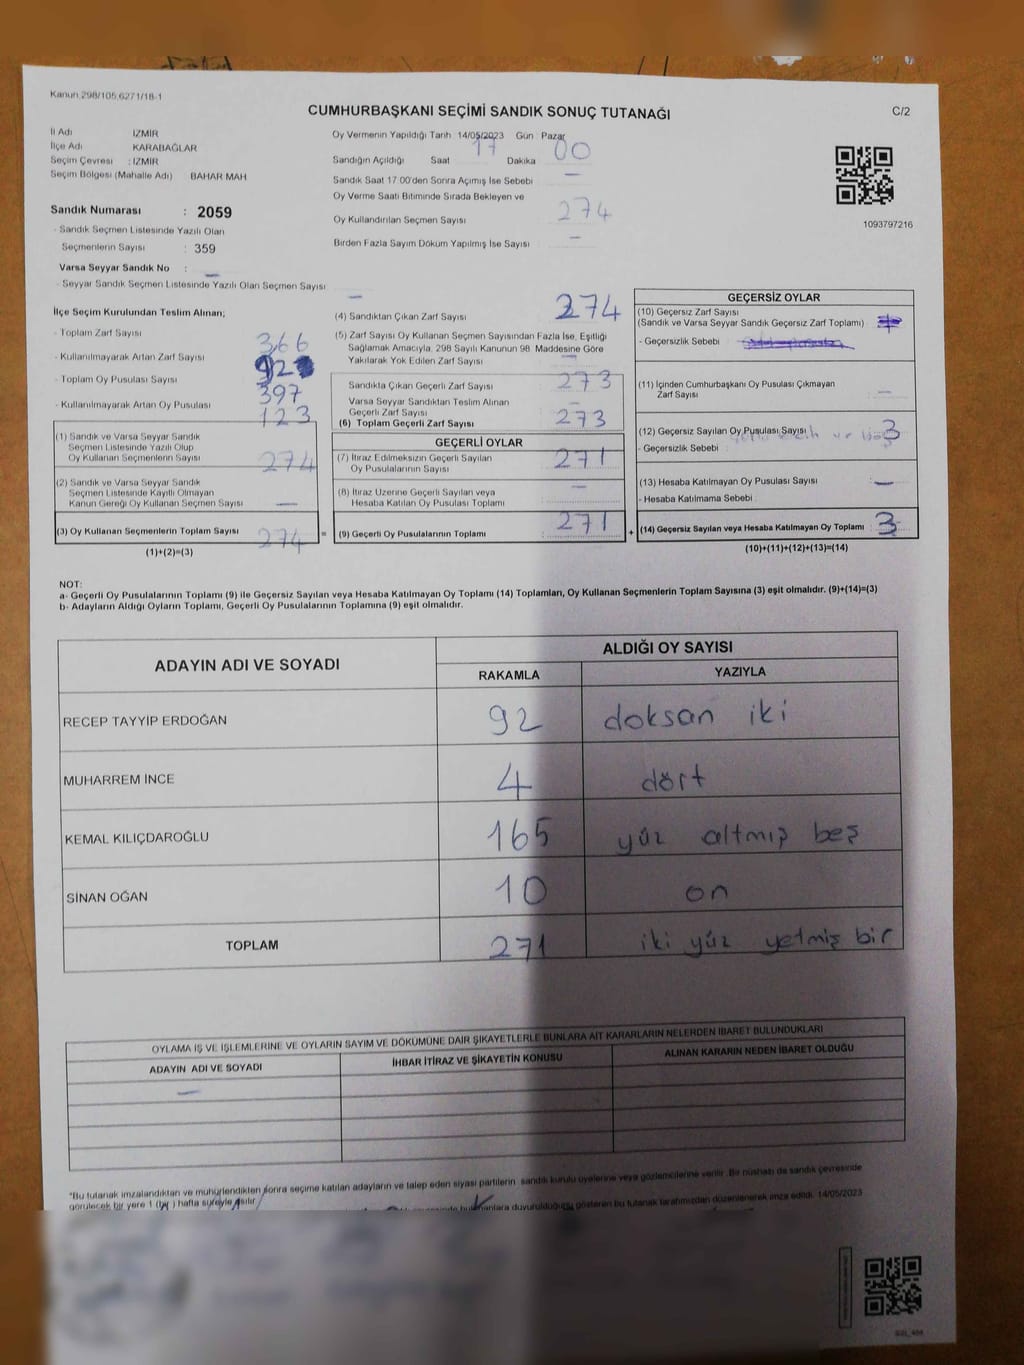 Kanun 298/105.6271/18-1
CUMHURBAŞKANI SEÇİMİ SANDIK SONUÇ TUTANAĞI
C/2
İl Adı İZMİR
İlçe Adı KARABAĞLAR
Seçim Çevresi : İZMİR
Seçim Bölgesi (Mahalle Adı) BAHAR MAH
Sandık Numarası : 2059
- Sandık Seçmen Listesinde Yazılı Olan
Seçmenlerin Sayısı : 359
Varsa Seyyar Sandık No : –
- Seyyar Sandık Seçmen Listesinde Yazılı Olan Seçmen Sayısı –
Oy Vermenin Yapıldığı Tarih 14/05/2023 Gün Pazar
Sandığın Açıldığı Saat 17 Dakika 00
Sandık Saat 17 00'den Sonra Açımış İse Sebebi –
Oy Verme Saati Bitiminde Sırada Bekleyen ve
Oy Kullandırılan Seçmen Sayısı 274
Birden Fazla Sayım Döküm Yapılmış İse Sayısı –
1093797216
İlçe Seçim Kurulundan Teslim Alınan;
- Toplam Zarf Sayısı 366
- Kullanılmayarak Artan Zarf Sayısı
- Toplam Oy Pusulası Sayısı 397
- Kullanılmayarak Artan Oy Pusulası 123
(1) Sandık ve Varsa Seyyar Sandık
Seçmen Listesinde Yazılı Olup
Oy Kullanan Seçmenlerin Sayısı 274
(2) Sandık ve Varsa Seyyar Sandık
Seçmen Listesinde Kayıtlı Olmayan
Kanun Gereği Oy Kullanan Seçmen Sayısı –
(3) Oy Kullanan Seçmenlerin Toplam Sayısı 274
(1)+(2)=(3)
(4) Sandıktan Çıkan Zarf Sayısı 274
(5) Zarf Sayısı Oy Kullanan Seçmen Sayısından Fazla İse, Eşitliği
Sağlamak Amacıyla, 298 Sayılı Kanunun 98 Maddesine Göre
Yakılarak Yok Edilen Zarf Sayısı –
Sandıkta Çıkan Geçerli Zarf Sayısı 273
Varsa Seyyar Sandıktan Teslim Alınan
Geçerli Zarf Sayısı –
(6) Toplam Geçerli Zarf Sayısı 273
GEÇERLİ OYLAR
(7) İtiraz Edilmeksizin Geçerli Sayılan
Oy Pusulalarının Sayısı 271
(8) İtiraz Üzerine Geçerli Sayılan veya
Hesaba Katılan Oy Pusulası Toplamı –
(9) Geçerli Oy Pusulalarının Toplamı 271
GEÇERSİZ OYLAR
(10) Geçersiz Zarf Sayısı
(Sandık ve Varsa Seyyar Sandık Geçersiz Zarf Toplamı)
- Geçersizlik Sebebi
(11) İçinden Cumhurbaşkanı Oy Pusulası Çıkmayan
Zarf Sayısı –
(12) Geçersiz Sayılan Oy Pusulası Sayısı 3
- Geçersizlik Sebebi
(13) Hesaba Katılmayan Oy Pusulası Sayısı –
- Hesaba Katılmama Sebebi
(14) Geçersiz Sayılan veya Hesaba Katılmayan Oy Toplamı 3
(10)+(11)+(12)+(13)=(14)
NOT:
a- Geçerli Oy Pusulalarının Toplamı (9) ile Geçersiz Sayılan veya Hesaba Katılmayan Oy Toplamı (14) Toplamları, Oy Kullanan Seçmenlerin Toplam Sayısına (3) eşit olmalıdır. (9)+(14)=(3)
b- Adayların Aldığı Oyların Toplamı, Geçerli Oy Pusulalarının Toplamına (9) eşit olmalıdır.
ADAYIN ADI VE SOYADI ALDIĞI OY SAYISI
RAKAMLA YAZIYLA
RECEP TAYYİP ERDOĞAN 92 doksan iki
MUHARREM İNCE 4 dört
KEMAL KILIÇDAROĞLU 165 yüz altmış beş
SİNAN OĞAN 10 on
TOPLAM 271 iki yüz yetmiş bir
OYLAMA İŞ VE İŞLEMLERİNE VE OYLARIN SAYIM VE DÖKÜMÜNE DAİR ŞİKAYETLERLE BUNLARA AİT KARARLARIN NELERDEN İBARET BULUNDUKLARI
ADAYIN ADI VE SOYADI İHBAR İTİRAZ VE ŞİKAYETİN KONUSU ALINAN KARARIN NEDEN İBARET OLDUĞU
–
"Bu tutanak imzalandıktan ve mühürlendikten sonra seçime katılan adayların ve talep eden siyasi partilerin sandık kurulu üyelerine veya gözlemcilerine verilir. Bir nüshası da sandık çevresinde
görülecek bir yere 1 (bir) hafta süreyle asılır. duyurulduğunu gösteren bu tutanak tarafımızdan düzenlenerek imza edildi. 14/05/2023